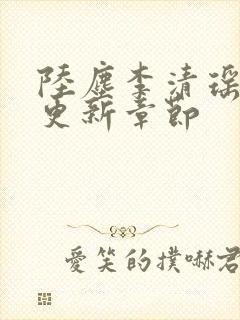 陸塵李清瑤
更新章節
愛笑的撲嚇君